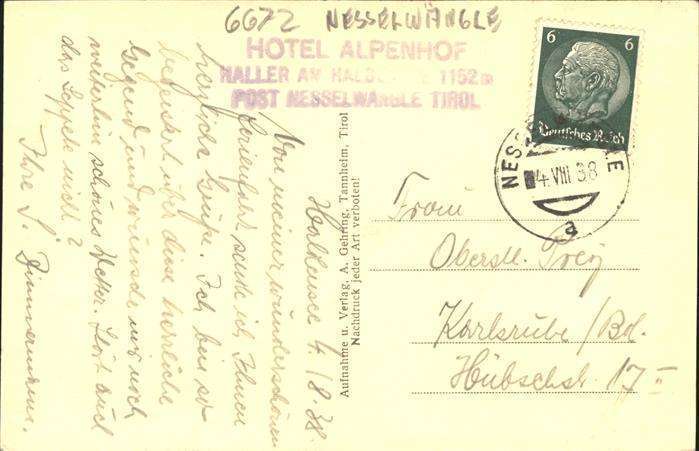 6672 NESSELWÄNGLE
HOTEL ALPENHOF
HALLER AM HALDENSEE 1152 m
POST NESSELWÄNGLE TIROL
6 6
Deutsches Reich
NESSELWÄNGLE
4. VIII 38
a
Haldensee 4./8.38.
Von meiner wunderschönen
Ferienfahrt sende ich Ihnen
herzliche Grüße. Ich bin so
begeistert über diese herrliche
Gegend und wünsche mir noch
weiterhin schönes Wetter. Hört auch
das Tippen auch?
Ihre S. Zimmermann.
Aufnahme u. Verlag A. Gehring, Tannheim, Tirol
Nachdruck jeder Art verboten!
Frau
Oberstl. Frey
Karlsruhe/Bd.
Hübschstr. 17 II